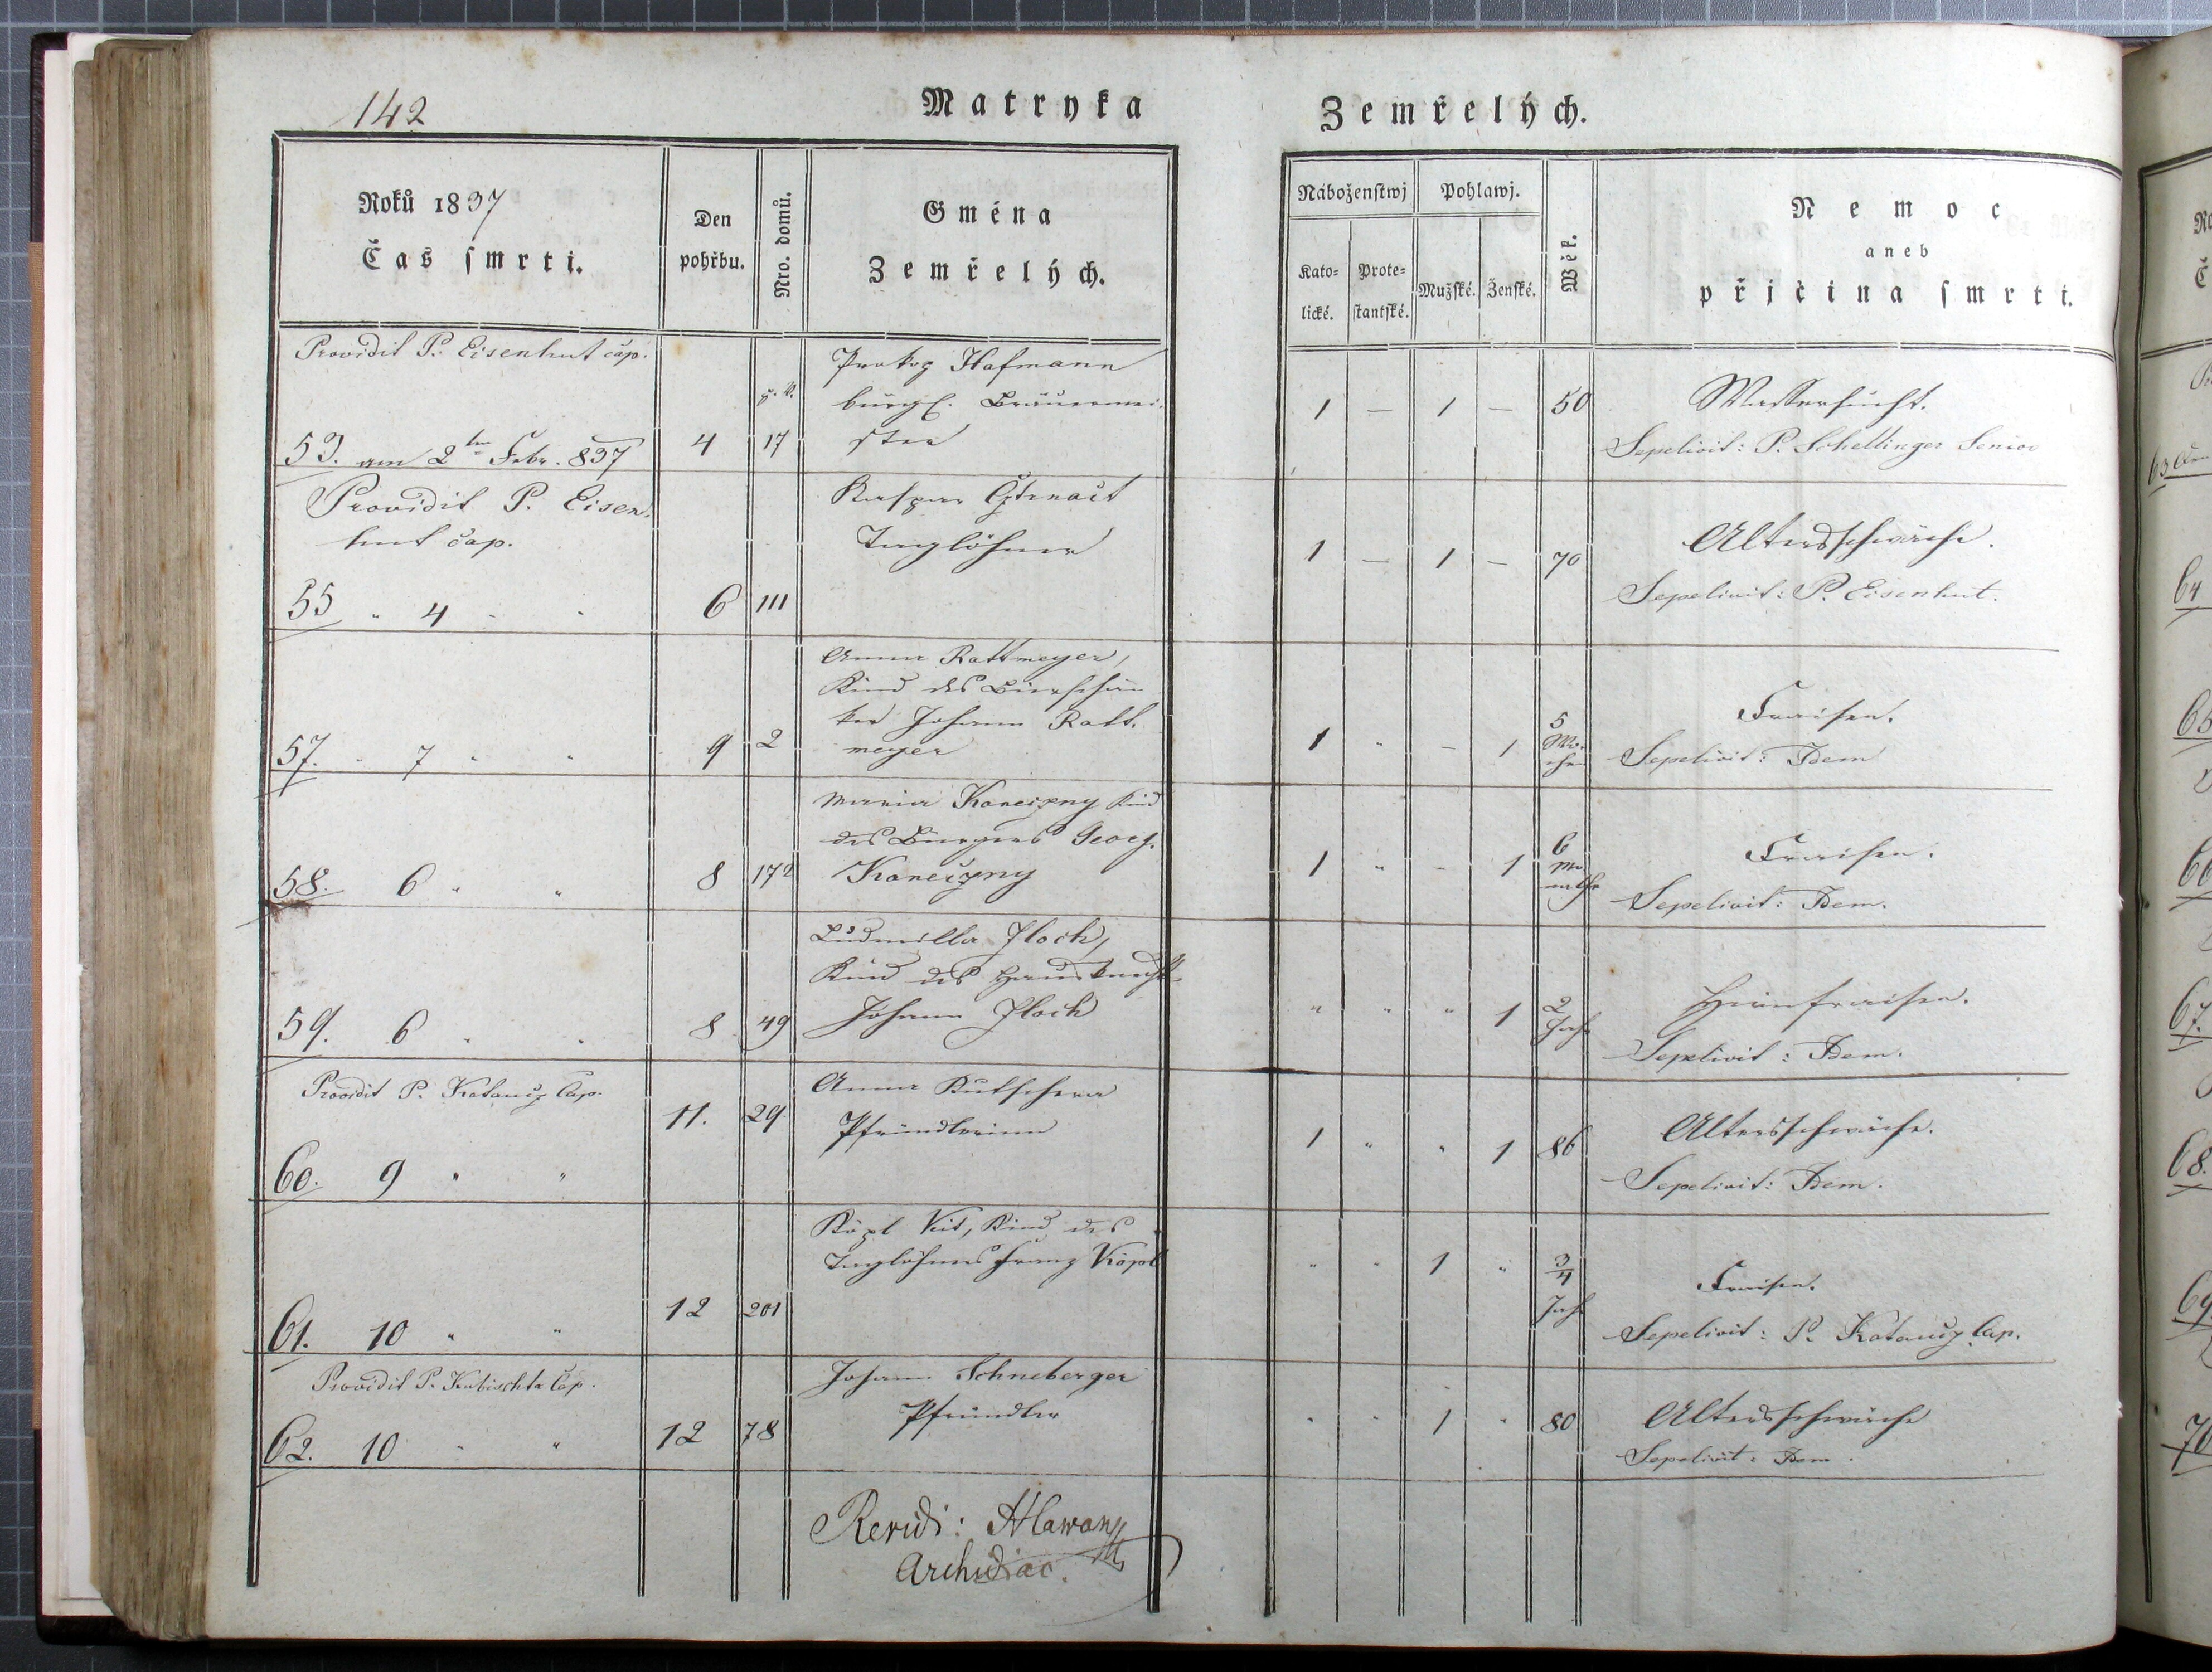 142
Matryka Zemřelých.
Roků 1837
Čas smrti.
Den
pohřbu.
Nro. domů.
Gména
Zemřelých.
Náboženstwj
Kato-
lické.
Prote-
stantské.
Pohlawj.
Mužské.
Ženské.
Wěk.
Nemoc
aneb
přjčina smrti.
Providit P. Eisenhut cap.
53. am 2ten Febr. 837
4
17
Prokop Hafmann
bürgl. Bräuermei-
ster
1 — 1 — 50
Wassersucht.
Sepelivit: P. Schellinger Senior
Providit P. Eisen-
hut cap.
55 " 4 " "
6
111
Kaspar
Taglöhner
1 — 1 — 70
Altersschwäche.
Sepelivit: P. Eisenhut.
57. " 7 " "
9
2
Anna Rattmeyer,
Kind des Bierschän
ker Johann Ratt-
meyer
1 " — 1
5
Wo-
chen
Fraisen.
Sepelivit: Idem
58. 6 " "
8
172
Maria Koneczny Kind
des Bürgers Georg.
Koneczny
1 " - 1
6
Mo
nathe
Fraisen.
Sepelivit: Idem.
59. 6 " "
8
49
Ludmilla Floch,
Kind des Hausknechts
Johann Floch
" " " 1
2
Jahr
Hirnfraisen.
Sepelivit: Idem.
Providit P. Kotaucz Cap.
60. 9 " "
11.
29
Anna Kutschera
Pfründlerinn
1 " " 1 86
Altersschwäche.
Sepelivit: Idem.
61. 10 " "
12
201
Köpl Veit, Kind des
Taglöhners Franz Köpl
" " 1 "
3/4
Jahr
Fraisen.
Sepelivit: P. Kotaucz Cap.
Providit P. Kubischta Cap.
62. 10 " "
12
78
Johann Schneberger
Pfründler
" " 1 " 80
Altersschwäche
Sepelivit: Idem.
Revidi:
Archidiac.
63
64
65
66
67.
68.
69
70